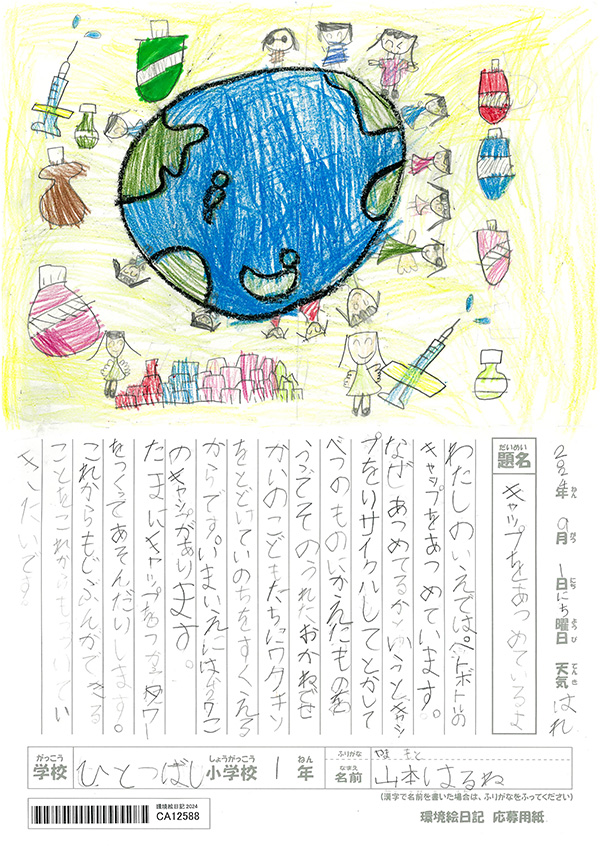 2024年ねん 9月がつ 1日にち にち曜日ようび 天気てんき はれ
題名だいめい キャップをあつめているよ
わたしのいえでは、ペットボトルの
キャップをあつめています。
なぜあつめてるかというとキャッ
プをリサイクルしてとかして
べつのものにかえたものを
うってそのうれたおかねでせ
かいのこどもたちにワクチン
をとどけていのちをすくえる
からです。いまいえには
のキャップがあります。
たまにキャップをつかってタワー
をつくってあそんだりします。
これからもじぶんができる
ことをこれからもつづけてい
きたいです。
がっこう 学校 ひとつばし しょうがっこう 小学校 1 ねん 年
ふりがな まと
なまえ 名前 山本はるね
(漢字で名前を書いた場合は、ふりがなをふってください)
環境絵日記2024
CA12588
環境絵日記 応募用紙